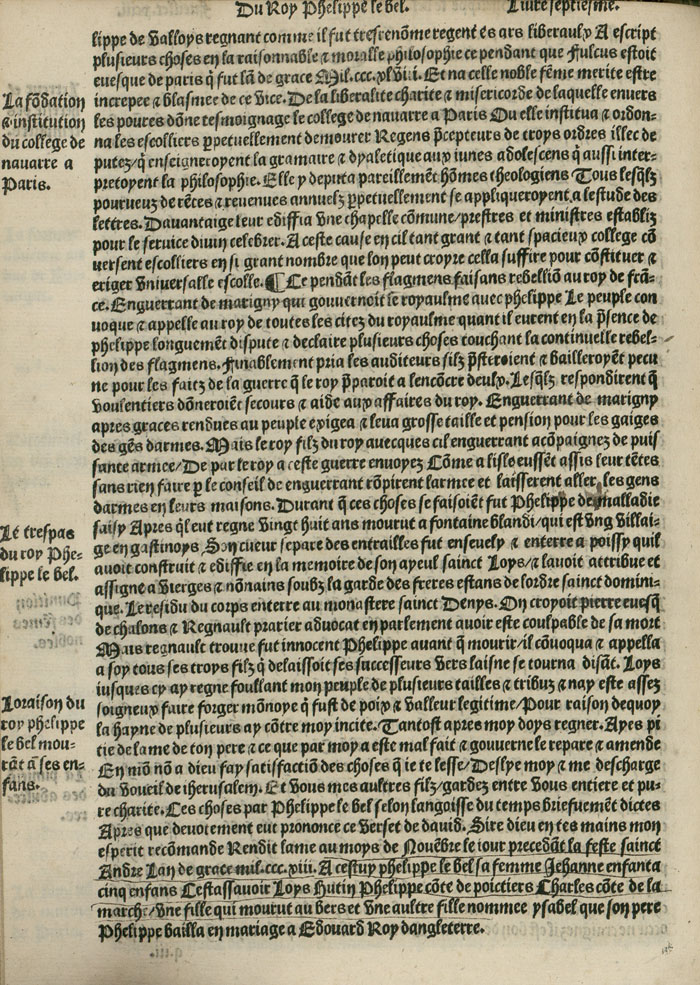 Du Roy Phelippe le bel. Liure septiesme.
lippe de Valloys regnant comme il fut tresrenōme regent es ars liberaulx A escript
plusieurs choses en la raisonnable ⁊ moralle philosophie ce pendant que Fulcus estoit
euesque de paris q̄ fut lā de grace Mil.ccc.xlviii. Et na celle noble fēme merite estre
increpee ⁊ blasmee de ce vice. De la liberalite charite ⁊ misericorde de laquelle enuers
La fōdation
⁊ institution
du college de
nauarre a
Paris.
les poures dōne tesmoignage le college de nauarre a Paris Ou elle institua ⁊ ordon-
na les escolliers ꝑpetuellement demourer Regens p̄cepteurs de troys ordres illec de
putez/q̄ enseigneroyent la gramaire ⁊ dyaletique aux iunes adolescens q̄ aussi inter-
pretoyent la philosophie. Elle y deputa pareillemēt hōmes theologiens Tous lesq̄lz
pourueuz de rētes ⁊ reuenues annuelz ꝑpetuellement se appliqueroyent a lestude des
lettres. Dauantaige leur ediffia vne chapelle cōmune/prestres et ministres establiz
pour le seruice diuin celebrer. A ceste cause en cil tant grant ⁊ tant spacieux college cō
versent escolliers en si grant nombre que lon peut croyre cella suffire pour cōstituer ⁊
eriger vniuerselle escolle. ¶ Ce pendāt les flagmens faisans rebelliō au roy de frā-
ce. Enguerrant de marigny qui gouuernoit le royaulme auec phelippe Le peuple con
uoque ⁊ appelle au roy de toutes les citez du royaulme quant il eurent en la p̄sence de
phelippe longuemēt dispute ⁊ declaire plusieurs choses touchant la continuelle rebel-
lion des flagmens. Finablement pria les auditeurs silz p̄steroient ⁊ bailleroyēt pecu
ne pour les faitz de la guerre q̄ le roy p̄paroit a lencōcre deulx. Lesq̄lz respondirent q̄
voulentiers dōneroiēt secours ⁊ aide aux affaires du roy. Enguerrant de marigny
apres graces rendues au peuple exigea ⁊ leua grosse taille et pension pour les gaiges
des gēs darmes. Mais le roy filz du roy auecques cil enguerrant acōpaignez de puis
sante armee/De par le roy a ceste guerre enuoyez Cōme a lisle eussēt assis leur tētes
sans rien faire ꝑ le conseil de enguerrant rōpirent larmee et laisserent aller les gens
darmes en leurs maisons. Durant q̄ ces choses se faisoiēt fut Phelippe de malladie
Le trespas
du roy Phe-
lippe le bel.
saisy Apres q̄l eut regne vingt huit ans mourut a fontaine blandi/qui est vng villai-
ge en gastinoys Son cueur separe des entrailles fut enseuely ⁊ enterre a poissy quil
auoit construit ⁊ ediffie en la memoire de son ayeul sainct Loys/⁊ lauoit attribue et
assigne a vierges ⁊ nōnains soubz la garde des freres estans de lordre sainct domini-
que. Le residu du corps enterre au monastere sainct Denys. On croyoit pierre euesq̄
de chalons ⁊ Regnault pratier aduocat en parlement auoir este coulpable de sa mort
Mais regnault trouue fut innocent Phelippe auant q̄ mourir/il cōuoqua ⁊ appella
a soy tous ses troys filz q̄ delaissoit ses successeurs vers laisne se tourna disāt. Loys
Loraison du
roy phelippe
le bel mou-
rāt a ses en-
fans.
iusques cy ay regne foullant mon peuple de plusieurs tailles ⁊ tribuz ⁊ nay este assez
soigneux faire forger mōnoye q̄ fust de poix ⁊ valleur legitime/Pour raison dequoy
la hayne de plusieurs ay cōtre moy incite. Tantost apres moy doys regner. Ayes pi
tie de lame de ton pere ⁊ ce que par moy a este mal fait ⁊ gouuerne le repare ⁊ amende
En mō nō a dieu fay satisfactiō des choses q̄ ie te lesse/Deslye moy ⁊ me descharge
du voueil de iherusalem. Et vous mes aultres filz/gardez entre vous entiere et pu-
re charite. Ces choses par Phelippe le bel selon langoisse du temps briefuement dictes
Apres que deuotement eut prononce ce verset de dauid. Sire dieu en tes mains mon
esperit recōmande Rendit lame au moys de Nouēbre le iour precedāt la feste sainct
Andre Lan de grace mil.ccc.xiii. A cestuy phelippe le bel sa femme Jehanne enfanta
cinq enfans Cestassauoir Loys Hutin Phelippe cōte de poictiers Charles cōte de la
marche/vne fille qui mourut au bers et vne aultre fille nommee ysabel que son pere
Phelippe bailla en mariage a Edouard Roy dangleterre.